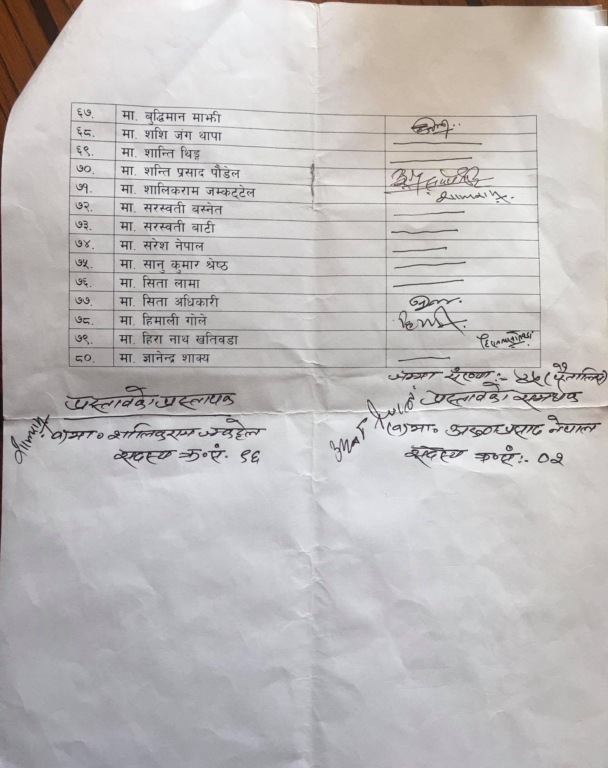 ६७. मा. बुद्धिमान माझी
६८. मा. शशि जंग थापा
६९. मा. शान्ति थिङ्ग
७०. मा. शन्ति प्रसाद पौडेल
७१. मा. शालिकराम जम्कट्टेल
७२. मा. सरस्वती बस्नेत
७३. मा. सरस्वती बाटी
७४. मा. सरेश नेपाल
७५. मा. सानु कुमार श्रेष्ठ
७६. मा. सिता लामा
७७. मा. सिता अधिकारी
७८. मा. हिमाली गोले
७९. मा. हिरा नाथ खतिवडा
८०. मा. ज्ञानेन्द्र शाक्य
जम्मा संख्या:- ४५ (पैतालिस)
प्रस्तावको प्रस्तावक
प्रस्तावको समर्थक
मा॰ शालिकराम जम्कट्टेल
मा॰ प्रसाद नेपाल
सदस्य क्र॰सं॰
सदस्य क्र॰सं:-